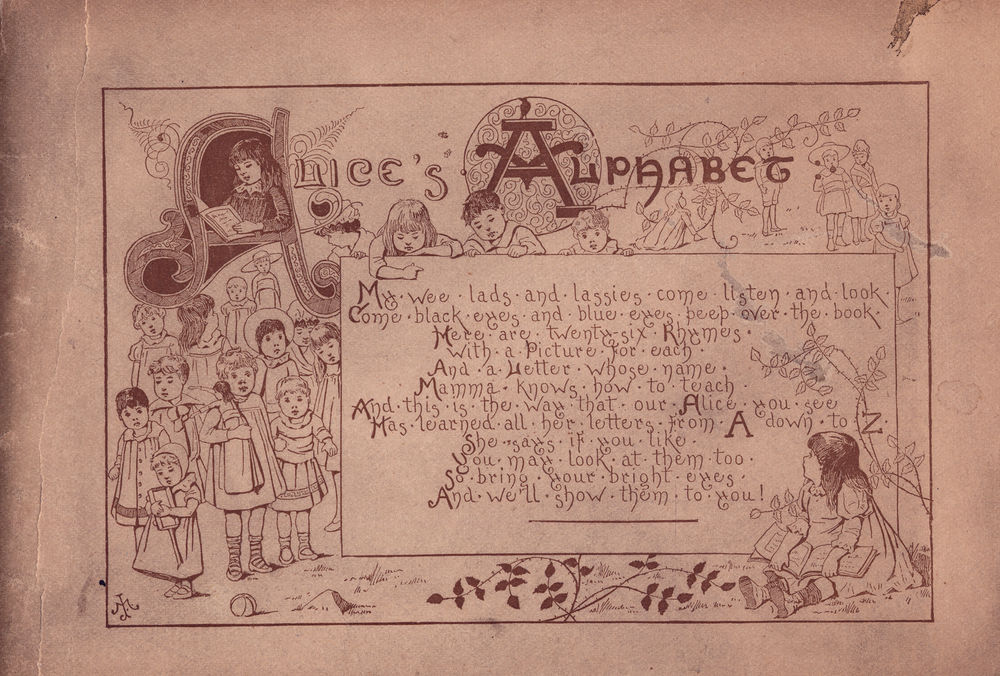 Alice's Alphabet
My · wee · lads · and · lassies · come · listen · and · look ·
Come · black · eyes · and · blue · eyes · peep · over · the · book ·
Here · are · twenty-six · Rhymes ·
With · a · Picture · for · each ·
And · a · Letter · whose · name ·
Mamma · knows · how · to · teach ·
And · this · is · the · way · that · our · Alice · you · see
Has · learned · all · her · letters · from · A down · to · Z
She · says · if · you · like ·
You · may · look · at · them · too ·
So · bring · your · bright · eyes ·
And · we'll · show · them · to · you!